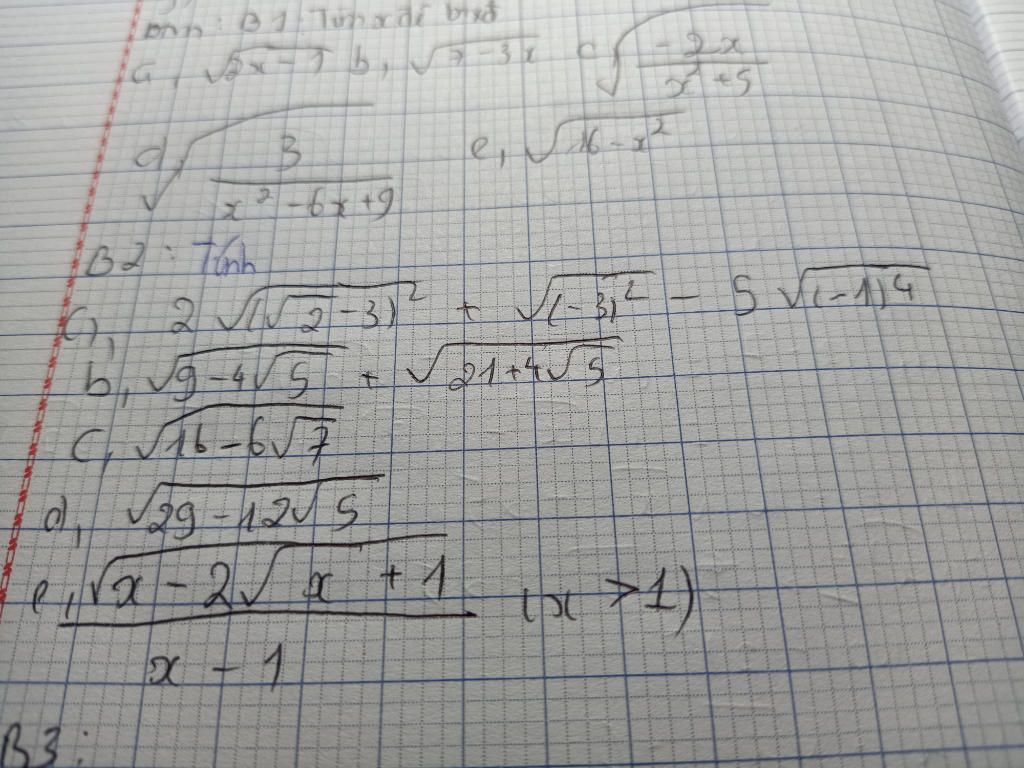 B1: Tìm x để
a, √(2x-1) b, √(7-3x) c √(-2x/(x²+5))
d √(3/(x²-6x+9)) e, √(16-x²)
B2: Tính
a, 2√((√2-3)²) + √((-3)²) - 5√((-1)⁴)
b, √(9-4√5) + √(21+4√5)
c, √(16-6√7)
d, √(29-12√5)
e, √(x-2√x+1)/(x-1) (x>1)
B3: